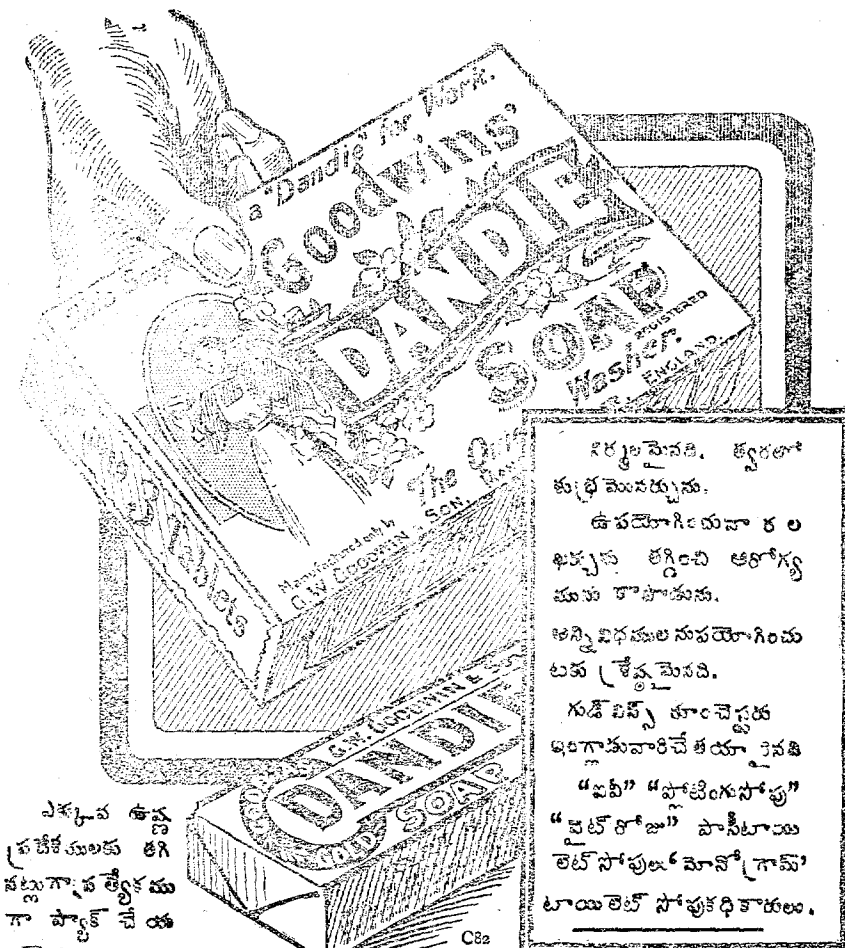 a "Dandie" for Work.
Goodwins'
DANDIE
SOAP
REGISTERED
Washer.
The
ENGLAND.
Manufactured by
G.W. GOODWIN & SON,
Tablets
G.W. GOODWIN &
DANDI
SOAP
నిర్మలమైనది. త్వరలో
శుభ్రమొనర్చును.
ఉపయోగించువారల
ఖర్చును తగ్గించి ఆరోగ్య
మును కాపాడును.
అన్నివిధములనుపయోగించు
టకు శ్రేష్ఠమైనది.
గుడ్ విన్స్ మాంచెస్టరు
ఇంగ్లాడువారిచే తయారైనది
“ఐవీ” “ప్లోటింగుసోపు”
“వైట్ రోజు” పాసీటాయి
లెట్ సోపులు ‘మోనోగ్రామ్’
టాయిలెట్ సోపుకధికారులు.
ఎక్కువ ఉష్ణ
ప్రదేశములకు తగి
నట్లుగా ప్రత్యేకము
గా ప్యాక్ చేయ
C82